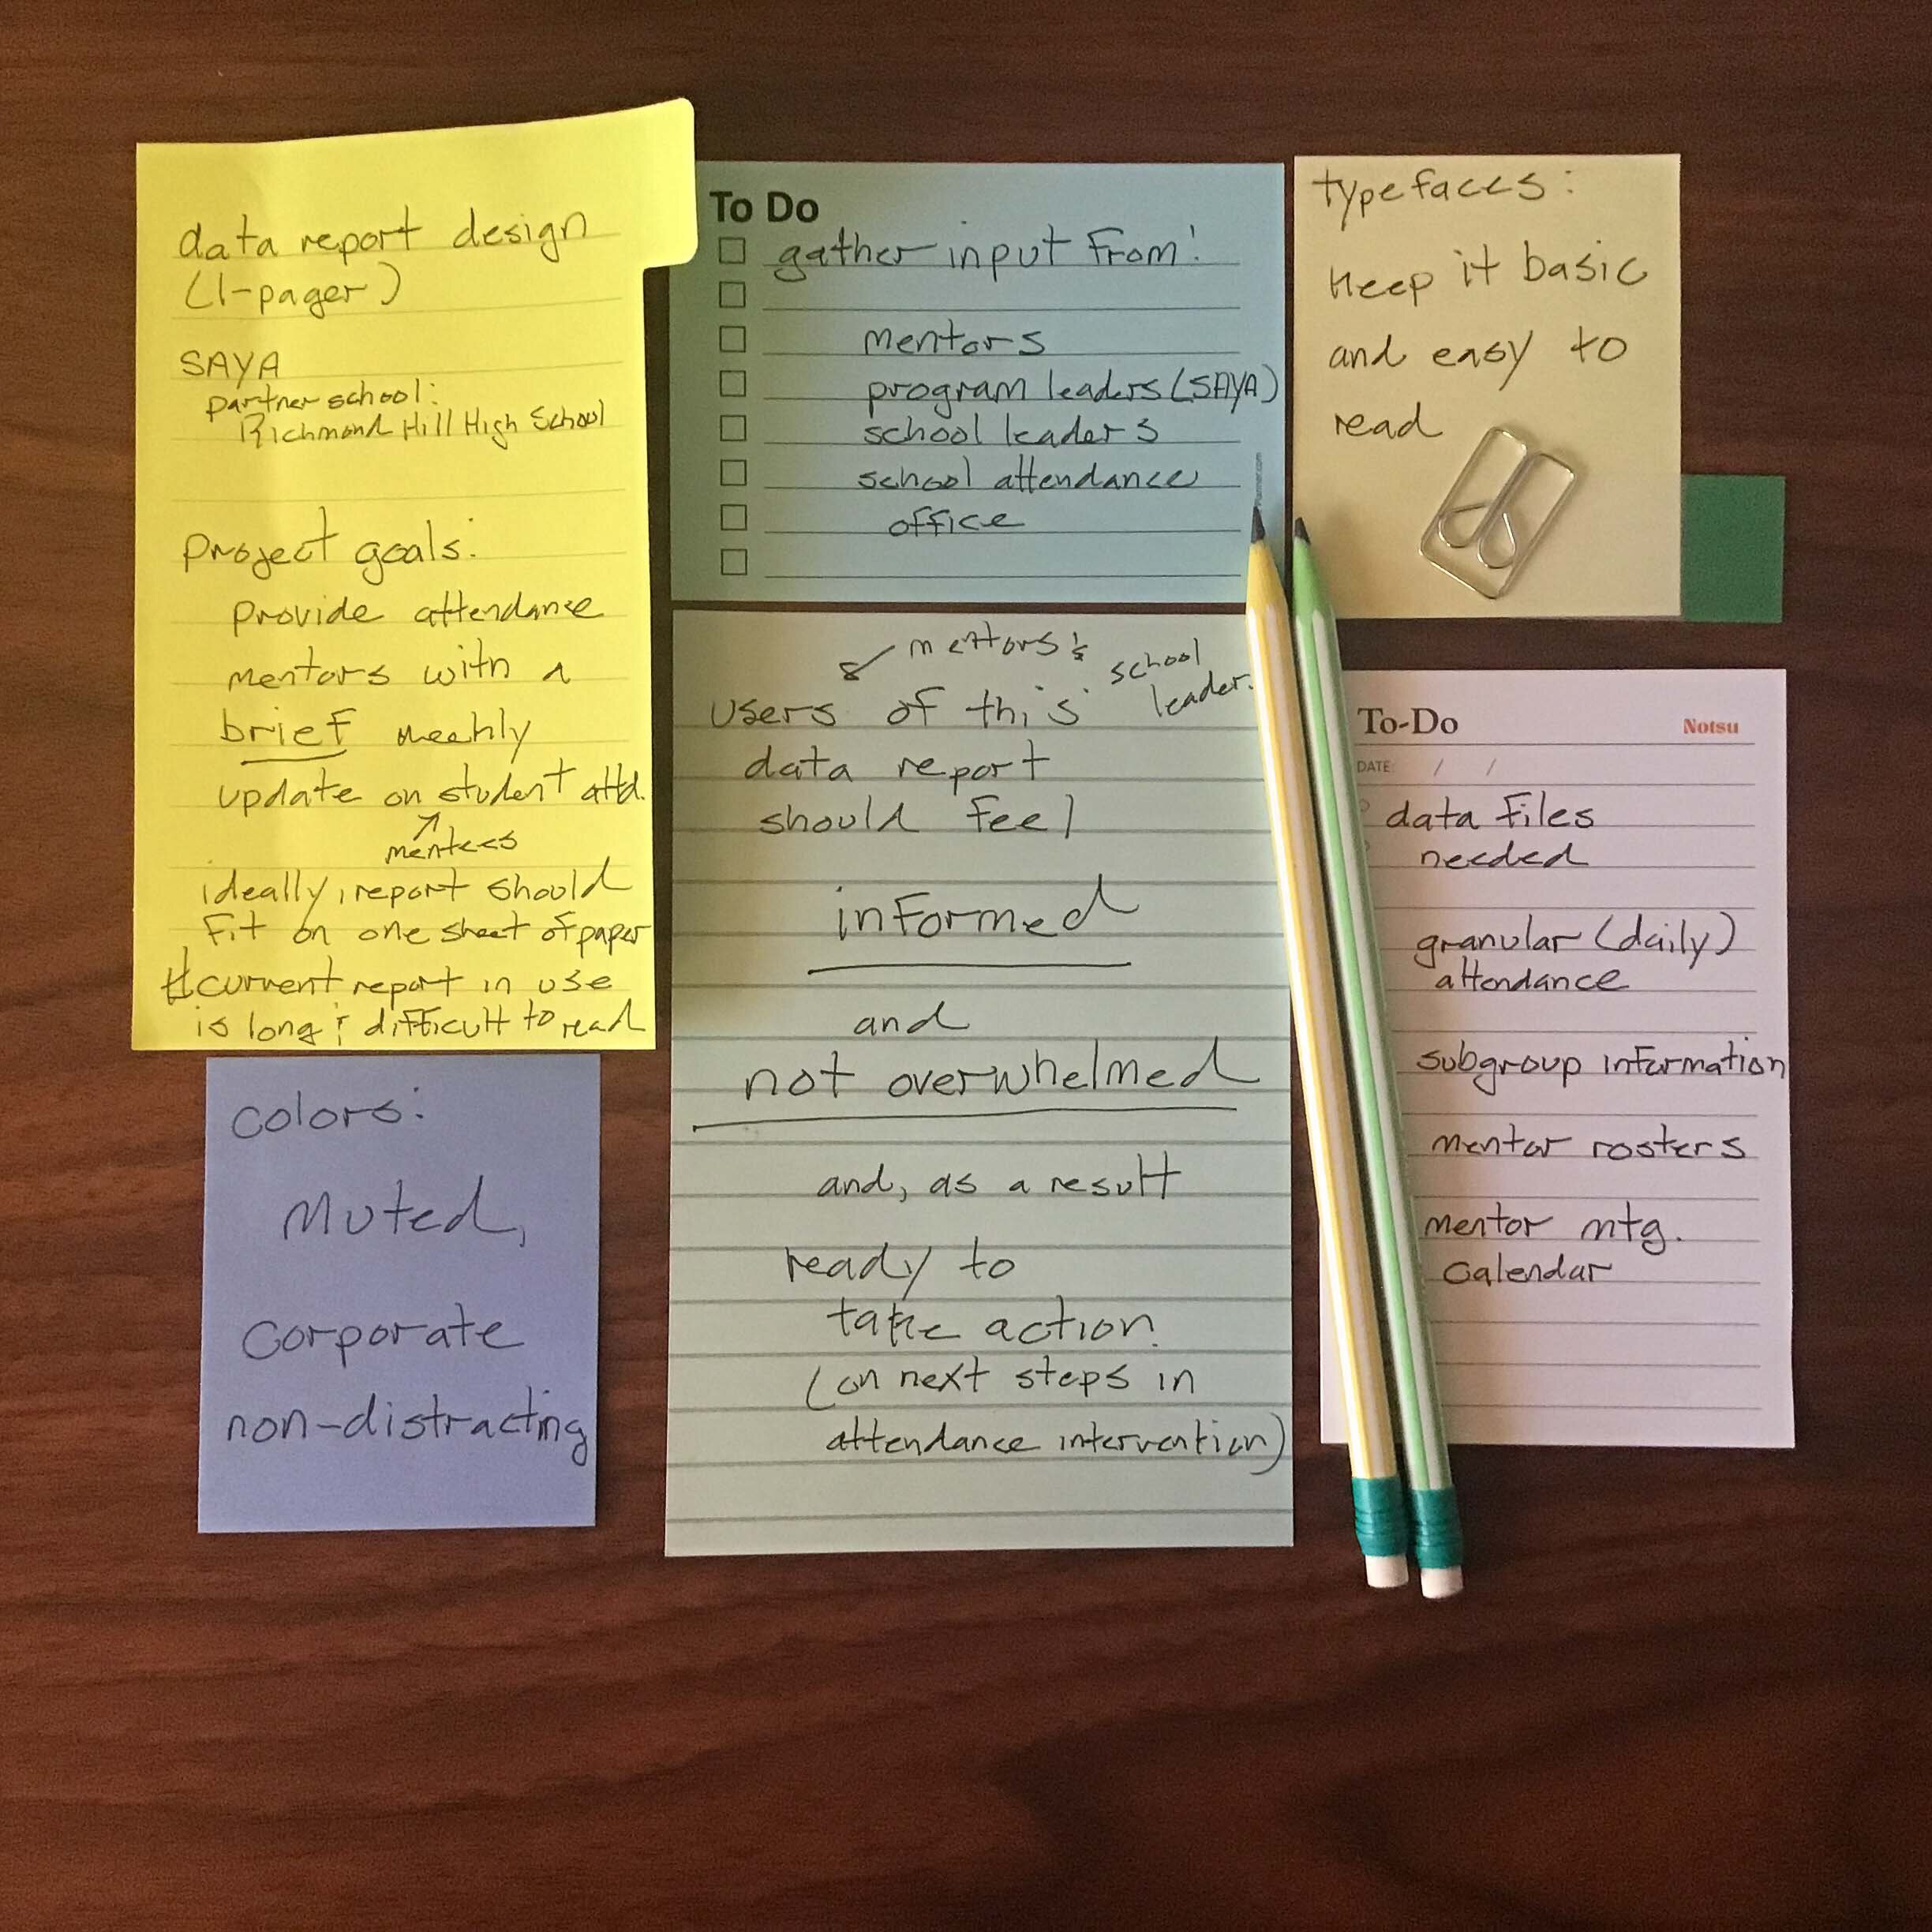 data report design
(1-pager)
SAYA
partner school:
Richmond Hill High School
project goals:
provide attendance
mentors with a
brief weekly
update on student attd.
mentees
ideally, report should
fit on one sheet of paper
current report in use
is long & difficult to read
To Do
gather input from:
mentors
program leaders (SAYA)
school leaders
school attendance
office
typefaces:
keep it basic
and easy to
read
colors:
muted,
corporate
non-distracting
mentors &
school
leader
users of this
data report
should feel
informed
and
not overwhelmed
and, as a result
ready to
take action
(on next steps in
attendance intervention)
To-Do Notsu
DATE: / /
data files
needed
granular (daily)
attendance
subgroup information
mentor rosters
mentor mtg.
calendar